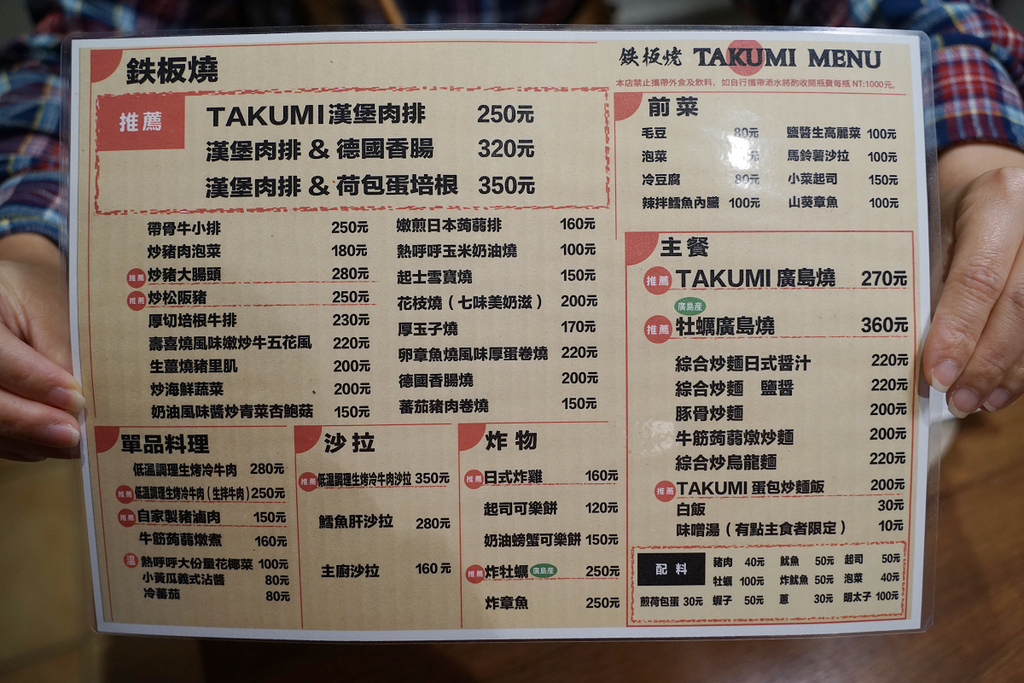 鉄板燒
推薦
TAKUMI漢堡肉排 250元
漢堡肉排 & 德國香腸 320元
漢堡肉排 & 荷包蛋培根 350元
帶骨牛小排 250元
炒豬肉泡菜 180元
推薦 炒豬大腸頭 280元
推薦 炒松阪豬 250元
厚切培根牛排 230元
壽喜燒風味嫩炒牛五花風 220元
生薑燒豬里肌 200元
炒海鮮蔬菜 200元
奶油風味醬炒青菜杏鮑菇 150元
嫩煎日本蒟蒻排 160元
熱呼呼玉米奶油燒 100元
起士雪寶燒 150元
花枝燒（七味美奶滋） 200元
厚玉子燒 170元
卵章魚燒風味厚蛋卷燒 220元
德國香腸燒 200元
蕃茄豬肉卷燒 150元
單品料理
低溫調理生烤冷牛肉 280元
推薦 低溫調理生烤冷牛肉（生拌牛肉） 250元
推薦 自家製豬滷肉 150元
牛筋蒟蒻燉煮 160元
溫 熱呼呼大份量花椰菜 100元
小黃瓜義式沾醬 80元
冷蕃茄 80元
沙拉
推薦 低溫調理生烤冷牛肉沙拉 350元
鱈魚肝沙拉 280元
主廚沙拉 160元
炸物
推薦 日式炸雞 160元
起司可樂餅 120元
奶油螃蟹可樂餅 150元
推薦 炸牡蠣 廣島産 250元
炸章魚 250元
鉄板焼 TAKUMI MENU
本店禁止攜帶外食及飲料，如自行攜帶酒水將酌收開瓶費每瓶 NT:1000元。
前菜
毛豆 80元
泡菜 元
冷豆腐 80元
辣拌鱈魚內臟 100元
鹽醬生高麗菜 100元
馬鈴薯沙拉 100元
小菜起司 150元
山葵章魚 100元
主餐
推薦 TAKUMI 廣島燒 270元
廣島産
推薦 牡蠣廣島燒 360元
綜合炒麵日式醬汁 220元
綜合炒麵 鹽醬 220元
豚骨炒麵 200元
牛筋蒟蒻燉炒麵 200元
綜合炒烏龍麵 220元
推薦 TAKUMI 蛋包炒麵飯 200元
白飯 30元
味噌湯（有點主食者限定） 10元
配料
豬肉 40元 魷魚 50元 起司 50元
牡蠣 100元 炸魷魚 50元 泡菜 40元
煎荷包蛋 30元 蝦子 50元 蔥 30元 明太子 100元